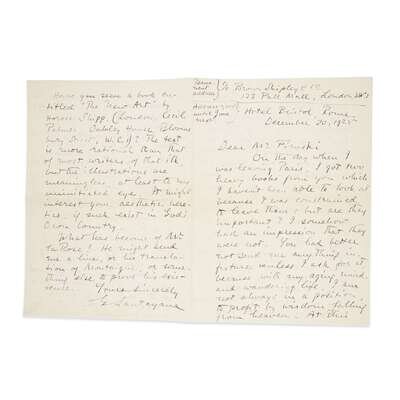 Have you seen a book en-
titled "The New Art" by
Horace Shipp. (London, Cecil
Palmer Oakley House, Blooms
bury Street, W.C.1)? The text
is more rational than that
of most writers of that ilk
but the illustrations are
meaningless, at least to the
uninitiated eye. It might
interest your aesthetic here-
tics, if such exist in God's
Own Country.
What has become of
He might send
me a line, or his transla-
tion of or some-
thing else to prove his exis-
tence.
Yours sincerely
G Santayana
Perma-
nent
address
C/o Brown Shipley & Co
123 Pall Mall, London S.W.1
until
Hotel Bristol Rome
December 20, 1925
Dear Mr.
On the day when I
was leaving Paris, I got two
heavy books from you which
I haven't been able to look at
because I was constrained
to leave them: but are they
important? I somehow
had an impression that they
were not. You had better
not send me anything in
future unless I ask for it
because with my aging mind
and wandering life, I am
not always in a position
to profit by wisdom falling
from heaven. At this